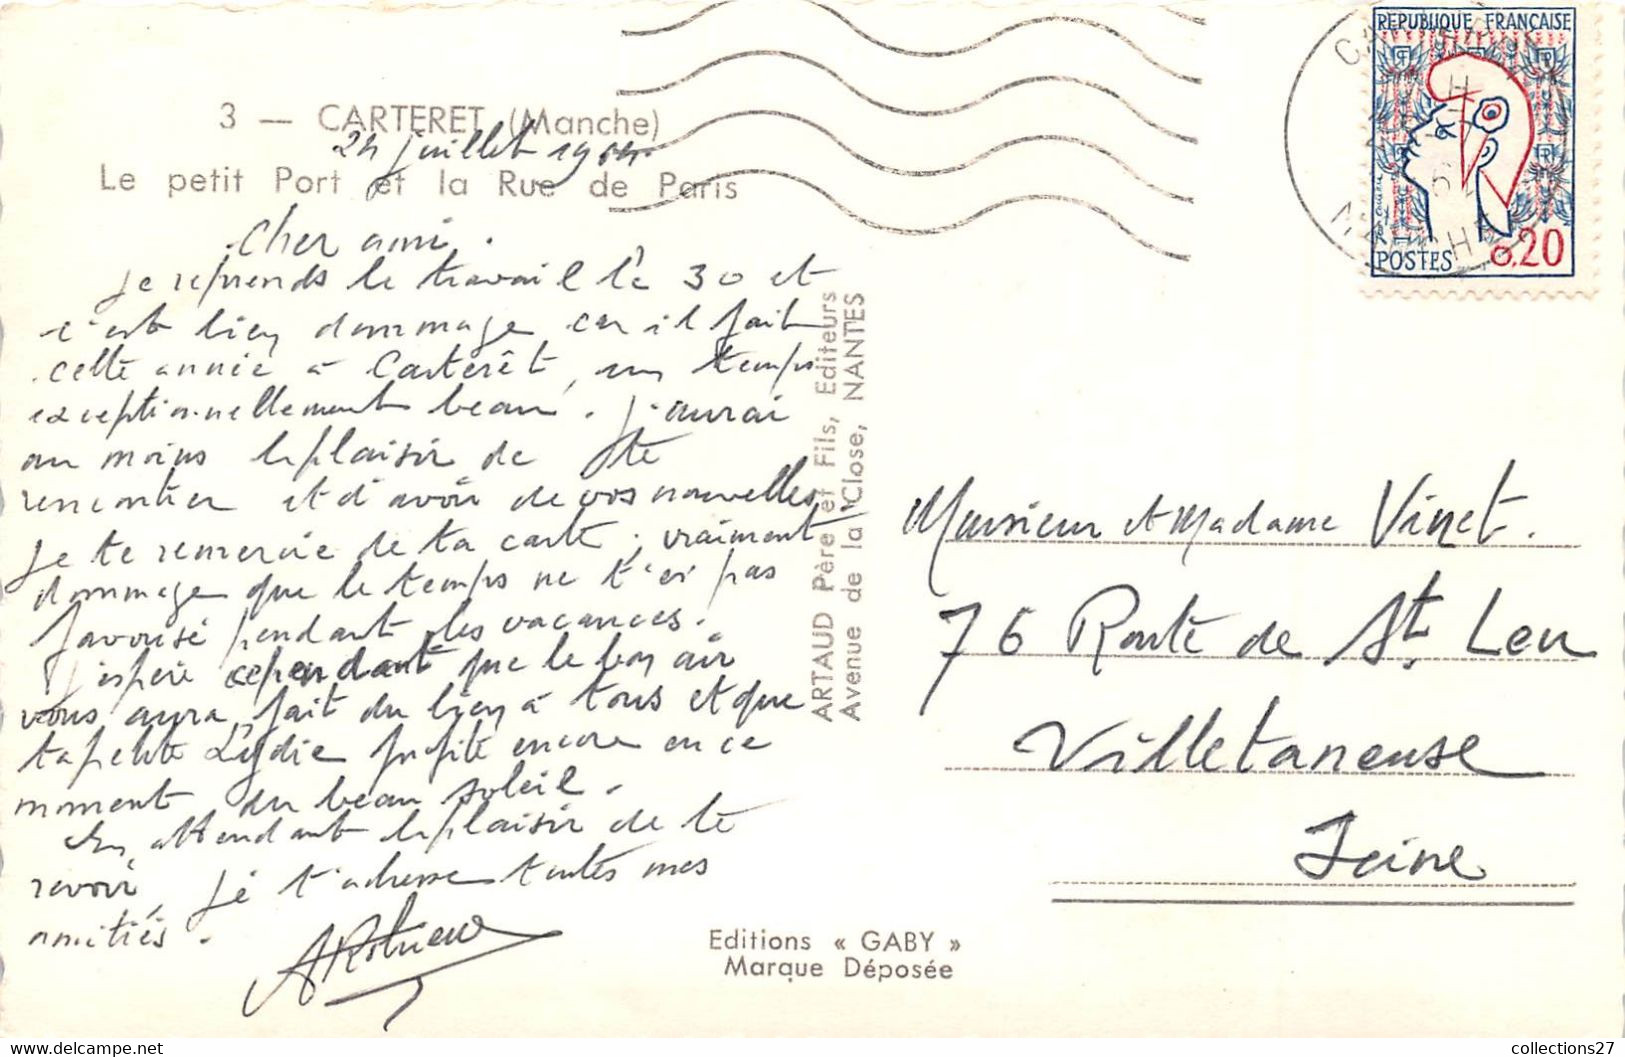 3 — CARTERET (Manche)
24 juillet 1964.
Le petit Port et la Rue de Paris
Cher ami.
Je reprends le travail le 30 et
c'est bien dommage car il fait
cette année à Carterêt, un temps
exceptionnellement beau. J'aurai
au moins le plaisir de te
rencontrer et d'avoir de vos nouvelles
Je te remercie de ta carte, vraiment
dommage que le temps ne t'ai pas
favorisé pendant les vacances.
J'espère cependant que le bon air
vous aura fait du bien à tous et que
ta petite Lydie profite encore en ce
moment du beau soleil.
En attendant le plaisir de te
revoir, Je t'adresse toutes mes
amitiés.
ARTAUD Père et Fils, Editeurs
Avenue de la Close, NANTES
Editions « GABY »
Marque Déposée
REPUBLIQUE FRANÇAISE
POSTES 0,20
MANCHE
Monsieur et Madame Vinet.
76 Route de St. Leu
Villetaneuse
Seine
collections27